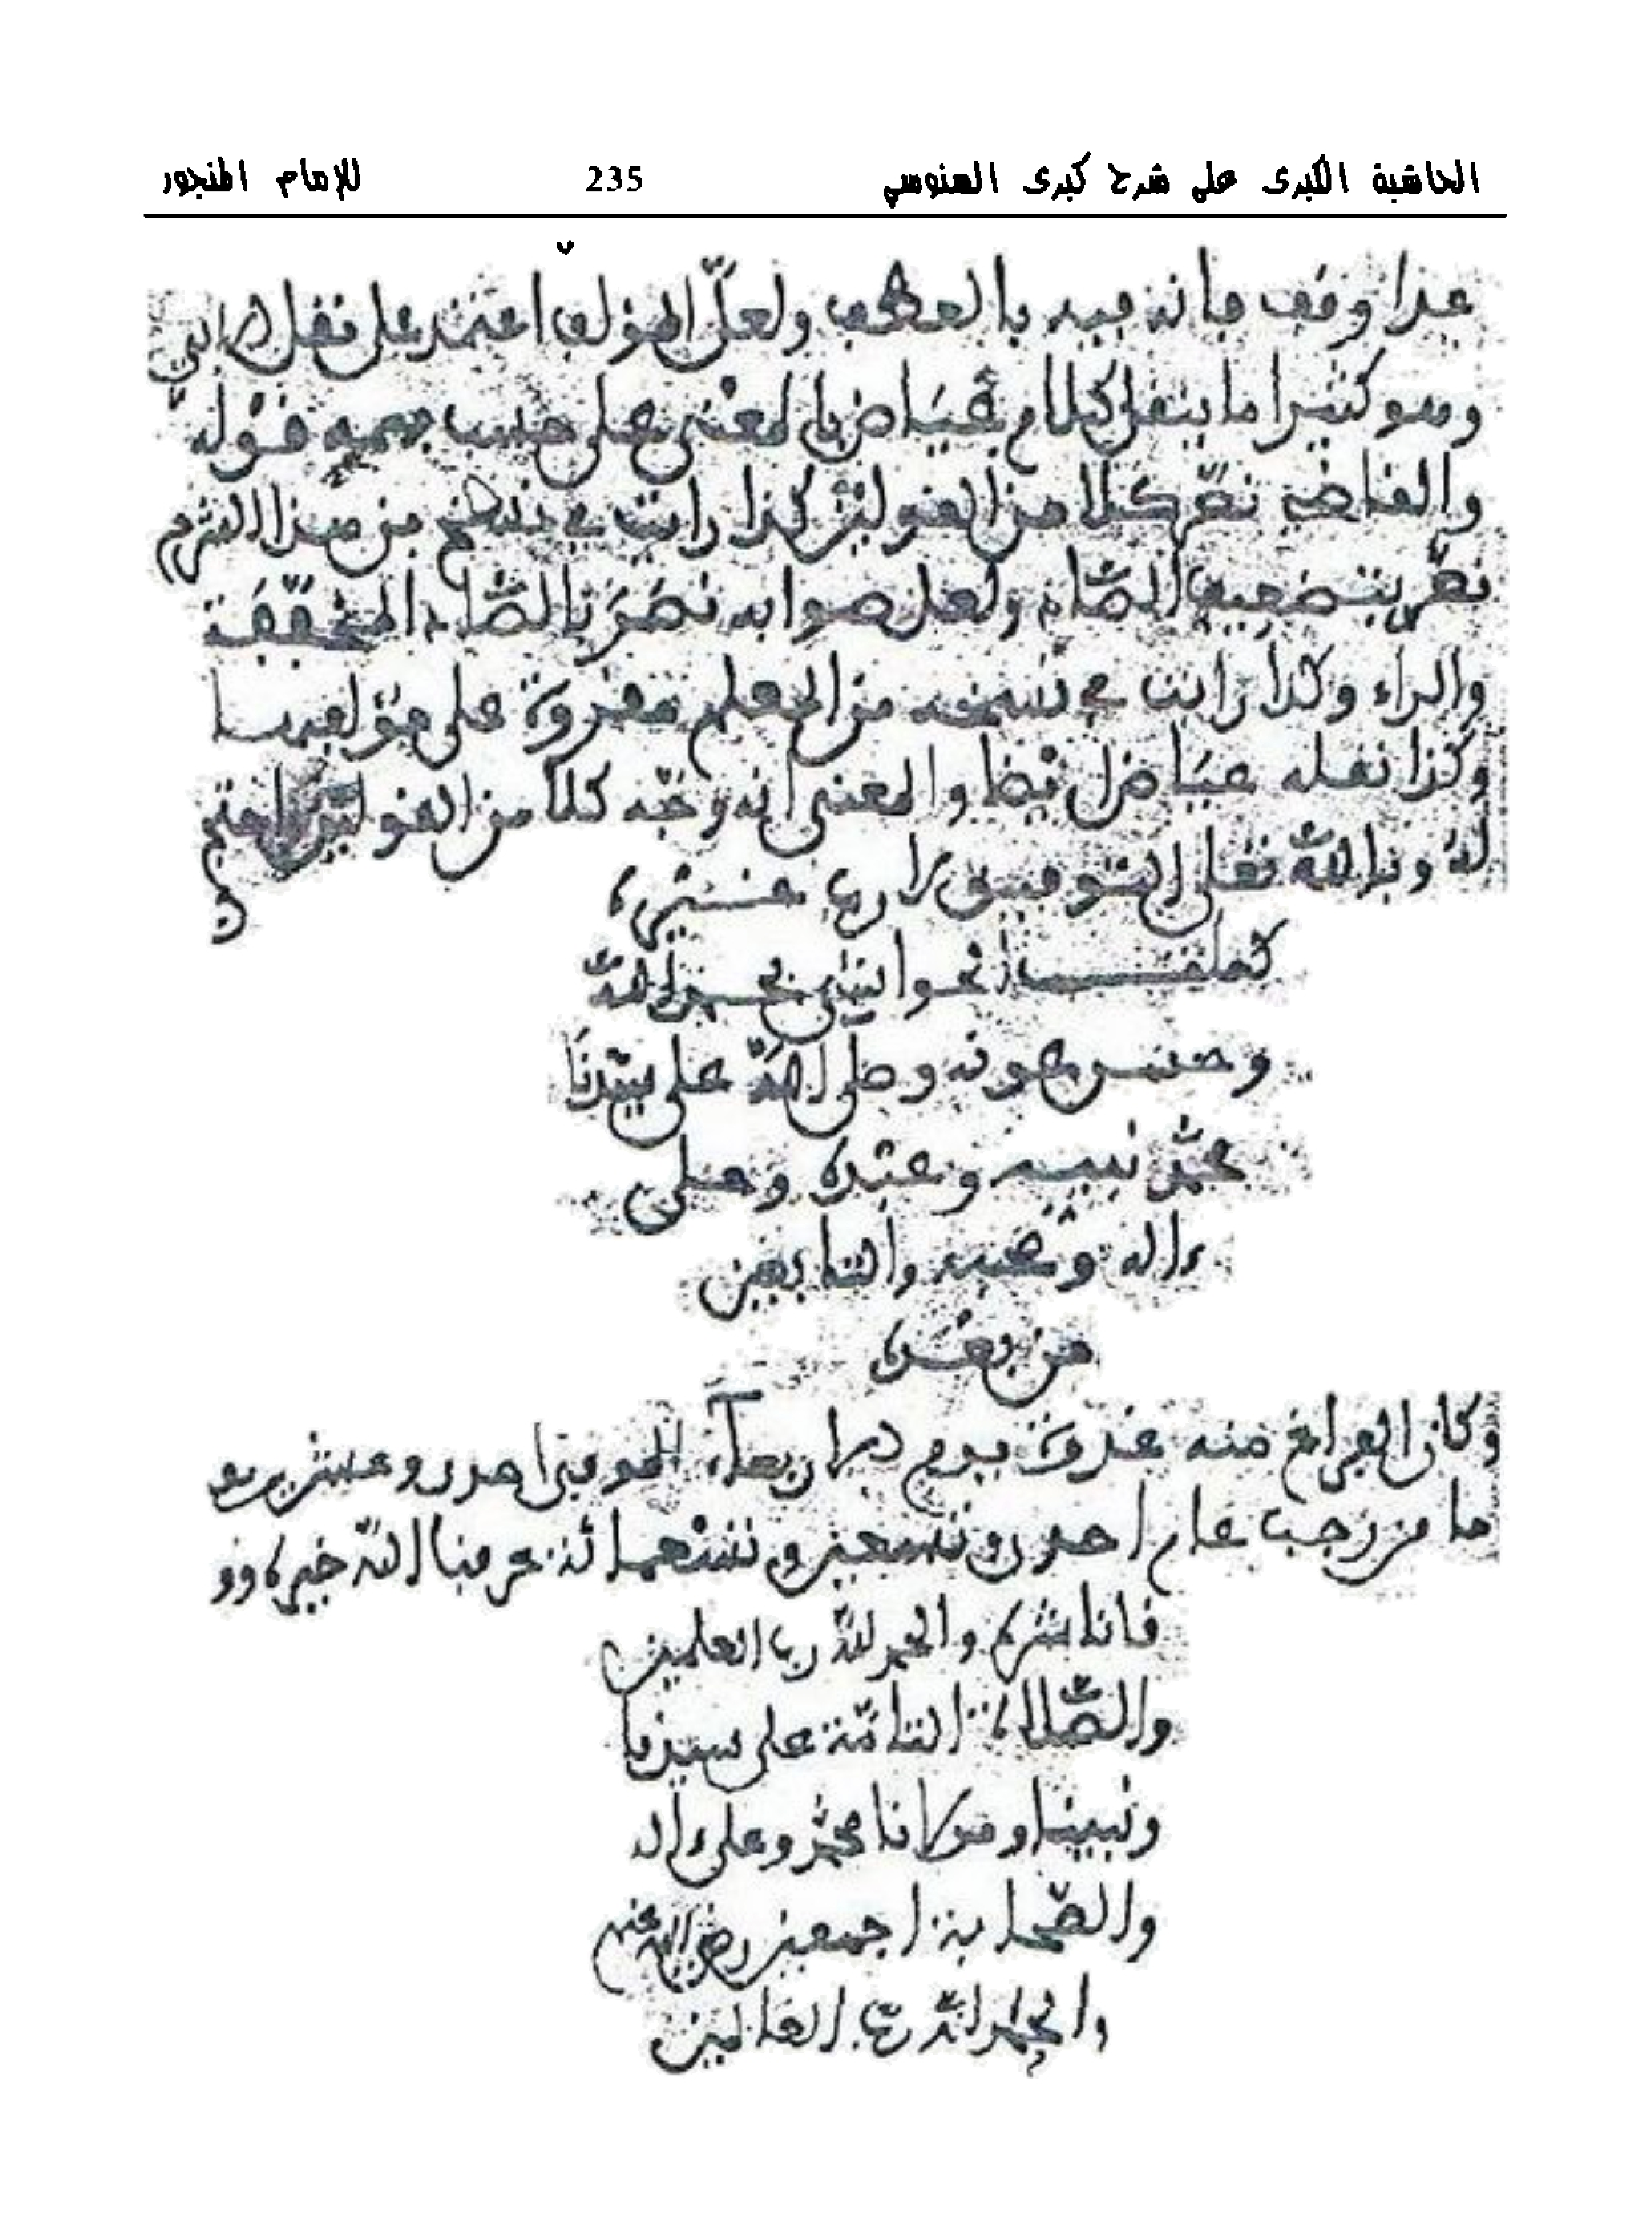 الحاشية الكبرى على شرح كبرى السنوسي 235 للإمام المنجور
وقف فانه فيه بالعطف ولعل المؤلف اعتمد على نقل الابي
وهو كثيرا ما ينقل كلام عياض بالمعنى على حسب فهمه قوله
والقاضي نص كلا من القولين كذا رايت في نسخ من هذا الشرح
نص بتضعيف الصاد ولعل صوابه نصر بالصاد المخففة
والراء وكذا رايت في نسخه من المعلم مقروة على مؤلفها
وكذا نقله عياض ايضا والمعنى انه وجه كلا من القولين واحتج
له وبالله تعلى التوفيق لا رب غيره
كملت الحواشي بحمد الله
وحسن عونه وصلى الله على سيدنا
محمد نبيه وعبده وعلى
ءاله وصحبه والتابعين
من بعده
وكان الفراغ منه غدوة يوم الاربعاء الموفى احد وعشرين يو
ما من رجب عام احد وتسعين وتسعمائة عرفنا الله خيره وو
قانا شره والحمد لله رب العلمين
والصلاة التامة على سيدنا
ونبينا ومولانا محمد وعلى ءاله
والصحابة اجمعين رضي الله عنهم
والحمد لله رب العالمين